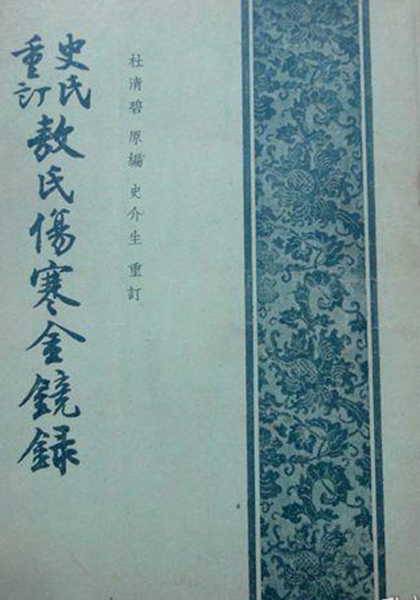 杜清碧 原編 史介生 重訂
史氏重訂敖氏傷寒金鏡録